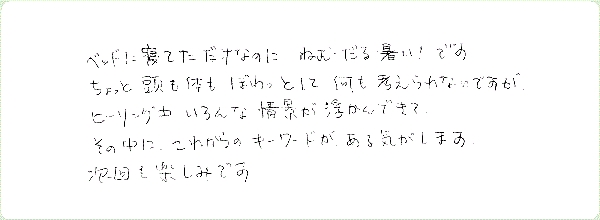 ベッドに寝てただけなのに ねむ・だる・暑い！です
ちょっと頭も体もぼわっとして何も考えられないですが、
ヒーリング中いろんな情景が浮かんできて、
その中に、これからのキーワードが、ある気がします。
次回も楽しみです